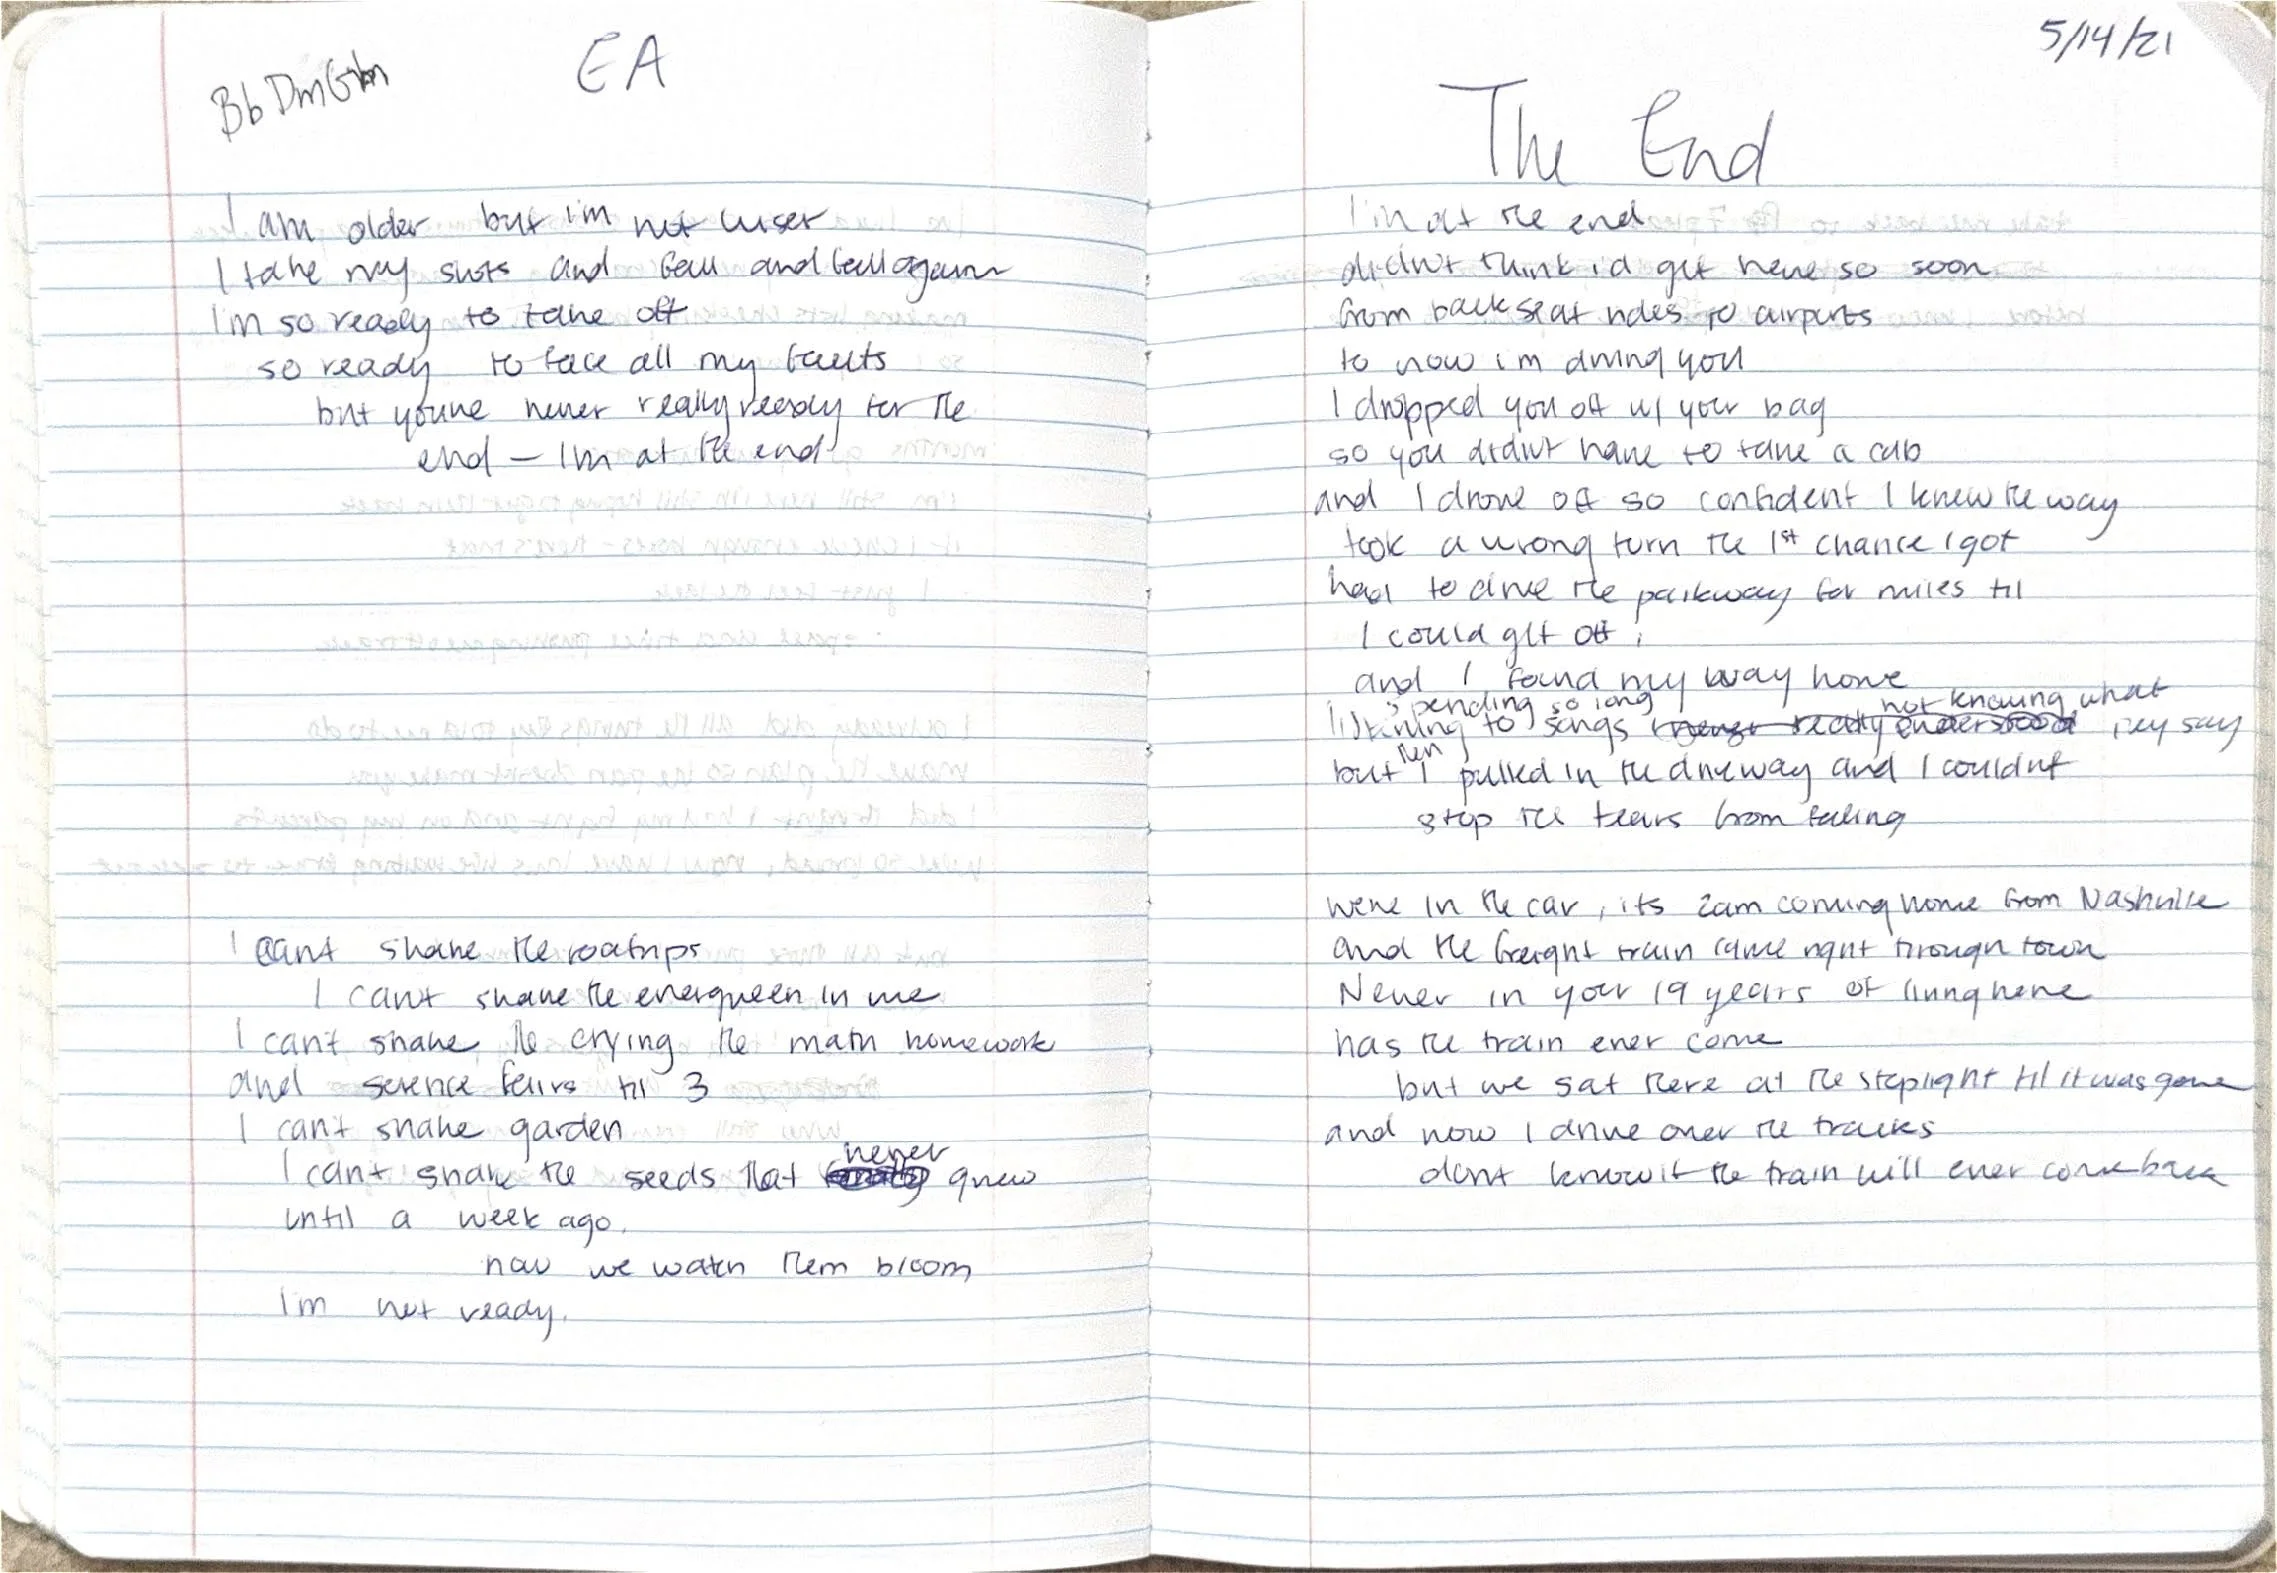 Bb Dm Gbm
EA
I am older but i'm not wiser
I take my shots and fall and fall again
I'm so ready to take off
so ready to face all my faults
but you're never really ready for the
end – I'm at the end
I can't shake the roadtrips
I can't shake the evergreen in me
I can't shake the crying the math homework
and science fairs til 3
I can't shake garden
I can't shake the seeds that never grew
until a week ago.
now we watch them bloom
I'm not ready.
5/14/21
The End
I'm at the end
didn't think i'd get here so soon
from backseat rides to airports
to now im driving you
I dropped you off w/ your bag
so you didn't have to take a cab
and I drove off so confident I knew the way
took a wrong turn the 1st chance I got
had to drive the parkway for miles til
I could get off,
and I found my way home
spending so long not knowing what
listening to songs I never really understood they say
but then I pulled in the driveway and I couldnt
stop the tears from falling
were in the car, its 2am coming home from Nashville
and the freight train came right through town
Never in your 19 years of living here
has the train ever come
but we sat there at the stoplight til it was gone
and now I drive over the tracks
dont know if the train will ever come back